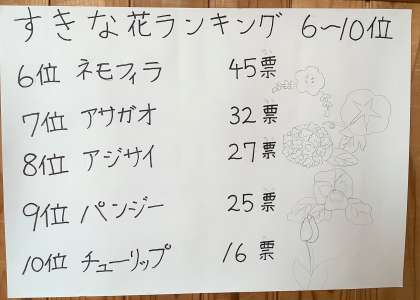 すきな花ランキング 6〜10位
6位 ネモフィラ 45票
7位 アサガオ 32票
8位 アジサイ 27票
9位 パンジー 25票
10位 チューリップ 16票